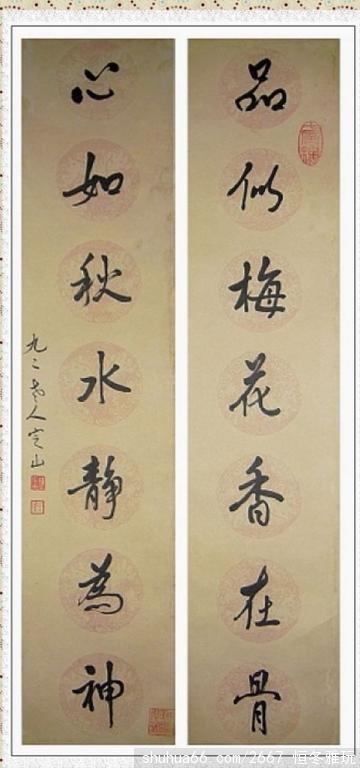 品似梅花香在骨
心如秋水靜為神
九二老人定山
shuhua66.com/2667 恒冬雅玩